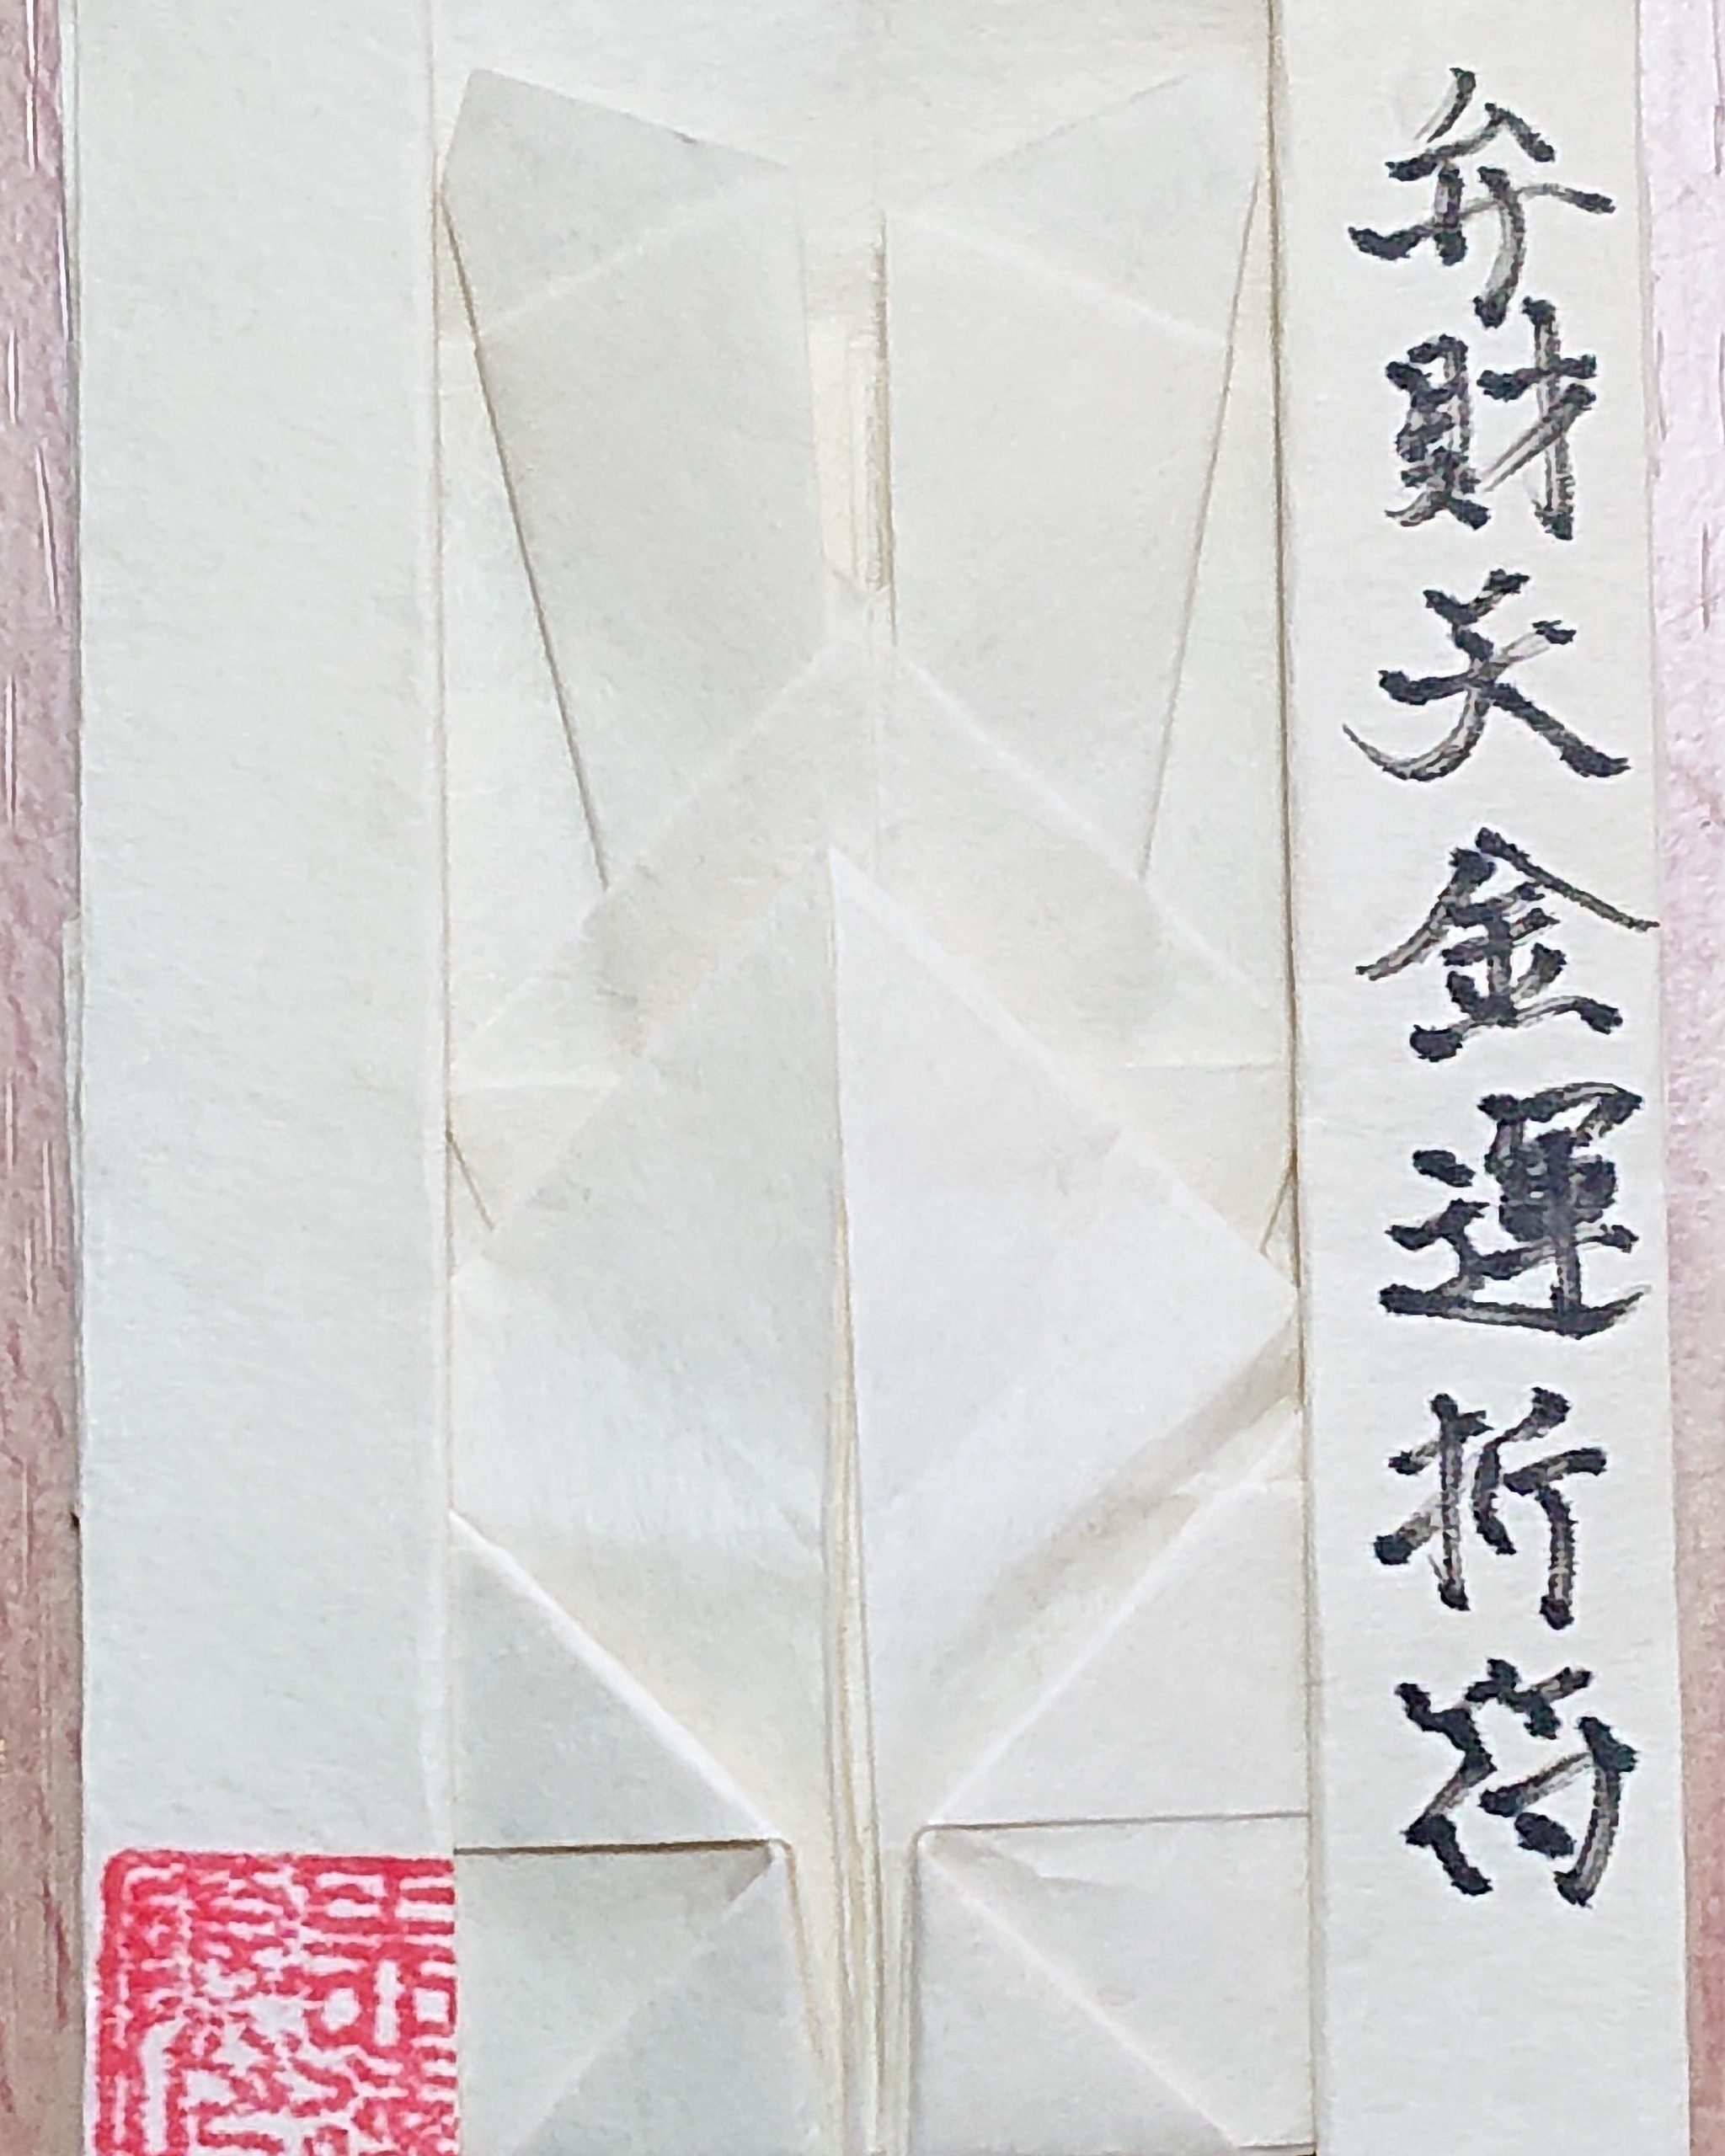 弁財天金運折符